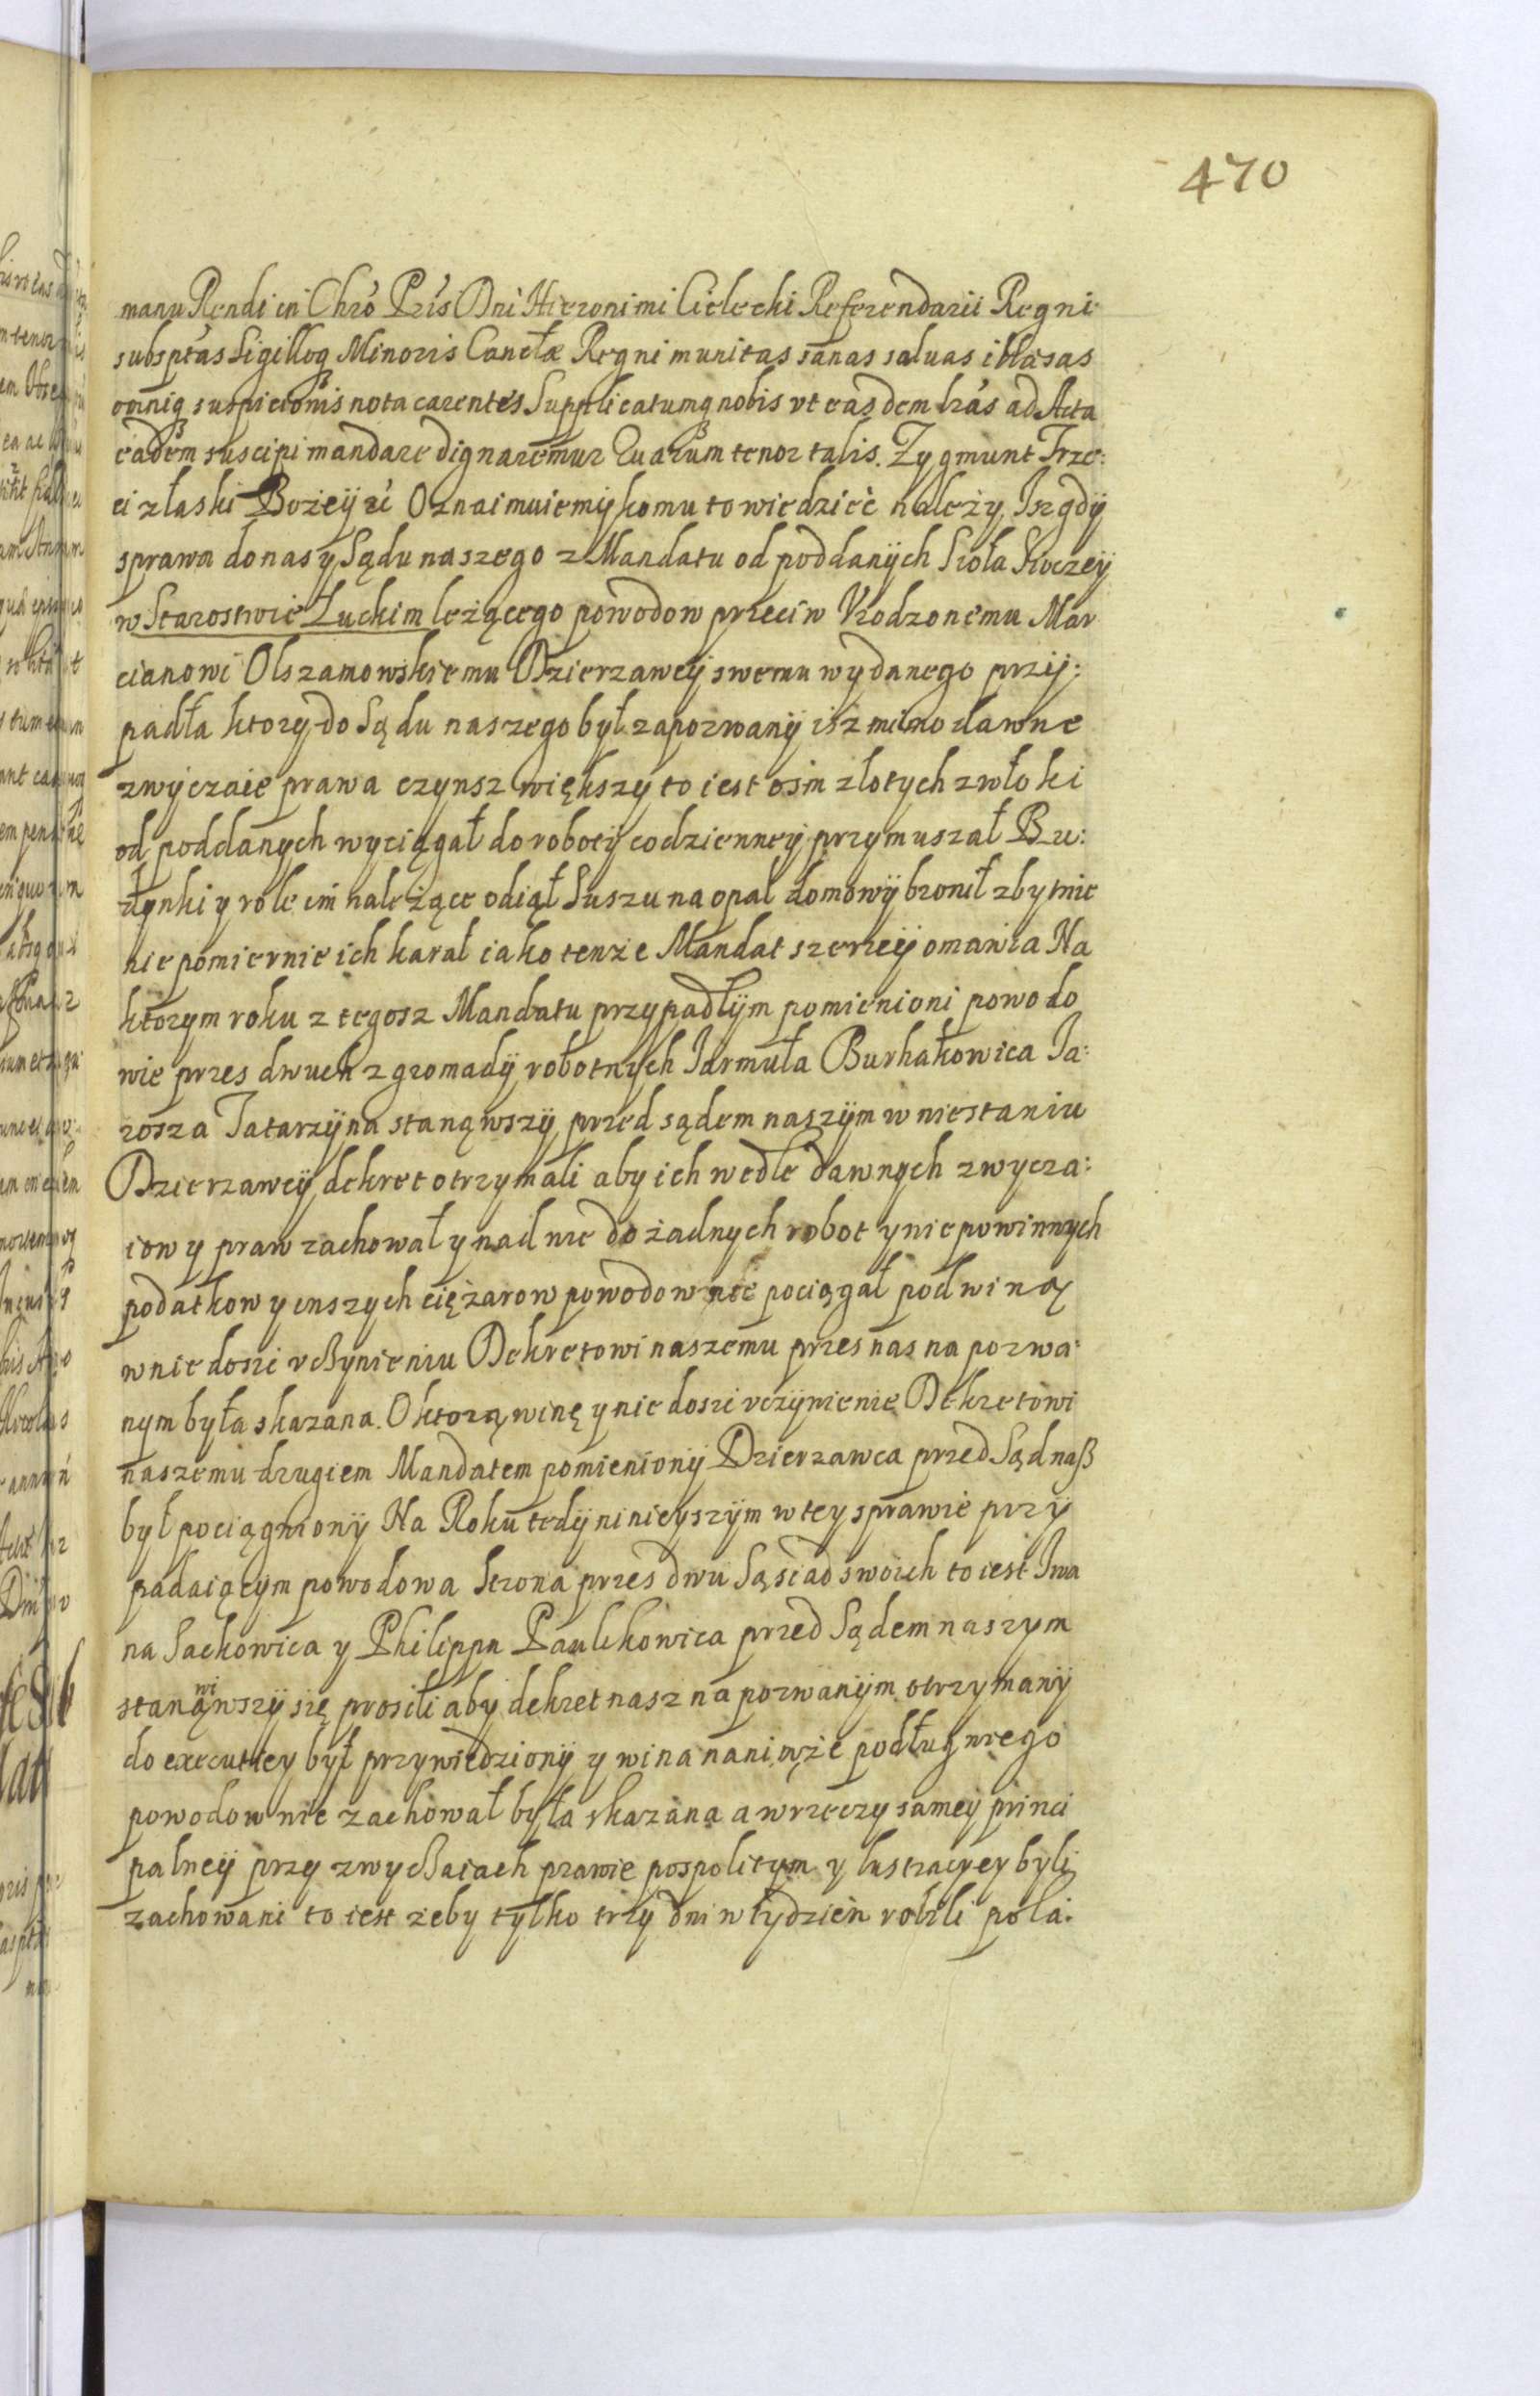 470
manu Rendi in Chro Pris Dni Hieronimi Cielecki Referendarii Regni
subsptas Sigilloq Minoris Canctæ Regni munitas sanas saluas illæsas
omniq suspicionis nota carentes Supplicatumq nobis vt easdem lras ad Acta
eadem suscipi mandare dignaremur Quarum tenor talis. Zygmunt Trze:
ci z łaski Bożeÿ &c Oznaimuiemÿ komu to wiedzieć należy, Isz gdÿ
sprawa do nas y Sądu naszego z Mandatu od poddanÿch Sioła
w Starostwie Łuckim leżącego powodow przeciw Vrodzonemu Mar
cianowi Olszamowskiemu Dzierzawcÿ swemu wydanego przÿ:
padła ktory do Sądu naszego był zapozwanÿ isz mimo dawne
zwÿczaie prawa czynsz większy to iest osm złotych z włoki
od poddanych wyciągał do robocÿ codzienneÿ przymuszał Bu:
dynki y role im należące odiął Suszu na opal domowÿ bronił zbytnie
niepomiernie ich karał iako tenże Mandat szerzeÿ omawia Na
ktorym roku z tegosz Mandatu przypadłÿm pomienioni powodo
wie przes dwuch z gromadÿ robotnych Jarmuła Burhakowica Ja:
rosza Tatarzÿna stanąwszÿ przed sądem naszÿm w niestaniu
Dzierzawcÿ dekret otrzymali aby ich wedle dawnych zwycza:
iow y praw zachował y nad nie do żadnych robot y niepowinnych
podatkow y inszych ciężarow powodow nie pociągał pod winą
w niedosić vczynieniu Dekretowi naszemu przes nas na pozwa:
nym była skazana. O ktorą winę y niedosić vczÿnienie Dekretowi
naszemu drugiem Mandatem pomienionÿ Dzierzawca przed Sąd naß
był pociągnionÿ Na Roku tedÿ ninieyszÿm w tey sprawie przÿ
padaiącym powodowa strona przes dwu Sąsiad swoich to iest Iwa
na Sackowica y Philippa Paulikowica przed Sądem naszym
stanąwszÿ się prosili aby dekret nasz na pozwanÿm otrzymanÿ
do executiey był przywiedzionÿ y wina na nim że podług niego
powodow nie zachował była skazana a w rzeczy sameÿ princi
palneÿ przy zwyczaiach prawie pospolitym y lustracyey byli
zachowani to iest żeby tylko trzy dni w tydzień robili pola: